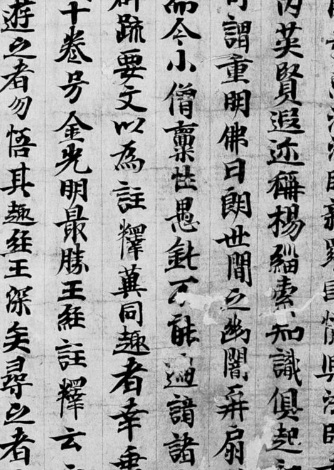 内英賢遐迩稱揚緇素知識俱起
可謂重明佛日朗世間之幽闇再扇
而今小僧稟性愚鈍不能遍諳諸
疏要文以為註釋冀同趣者幸垂
十卷号金光明最勝王経註釋云
遊之者勿悟其趣経王深矣尋之者